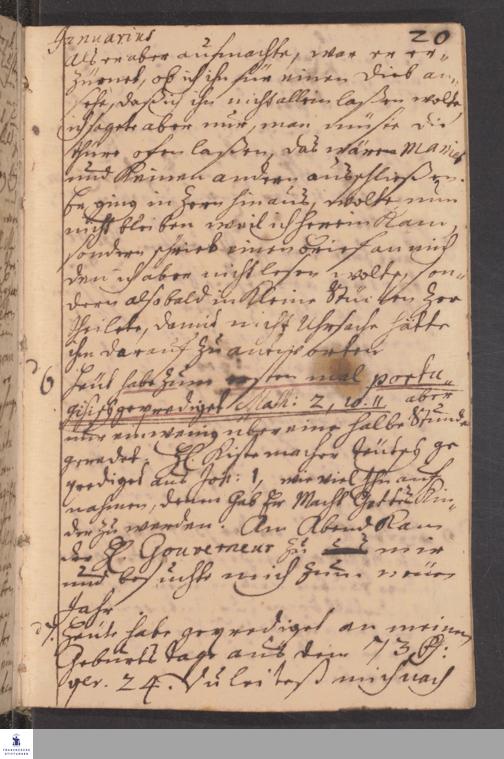 Januarius 20
als er aber aufmachte, war er er-
zürnet, ob ich ihn für einen Dieb an-
sehe, daß ich ihn nicht allein laßen wolte
ich sagete aber nur, man müße die
thüre ofen laßen, das wäre Manier
und keinen andern ausschließen.
Er ging in Zorn hinaus, wolte nun
nicht bleiben weil ich herein kam,
sondern schrieb einen brief an mich
den ich aber nicht lesen wolte, son-
dern alsobald in kleine Stücken zer
theilete, damit nicht Uhrsache hätte
ihm darauf zu antworten
d 6. Heut habe zum ersten mal portu-
gisisch geprediget Math: 2, v. 11. aber
nur ein wenig über eine halbe Stunde
geredet. H. Kistemacher teutsch ge
prediget aus Joh: 1, wie viel Ihn auf
nahmen, denen gab Er Macht Gottes Kin-
der zu werden. Am Abend kam
der H. Gouverneur zu mir
und besuchte mich zum neuen
Jahr
d 7. Heute habe geprediget an meinen
Geburts tage aus dem 73 Ps:
ver. 24. Du leitest mich nach
FRANCKESCHE
STIFTUNGEN